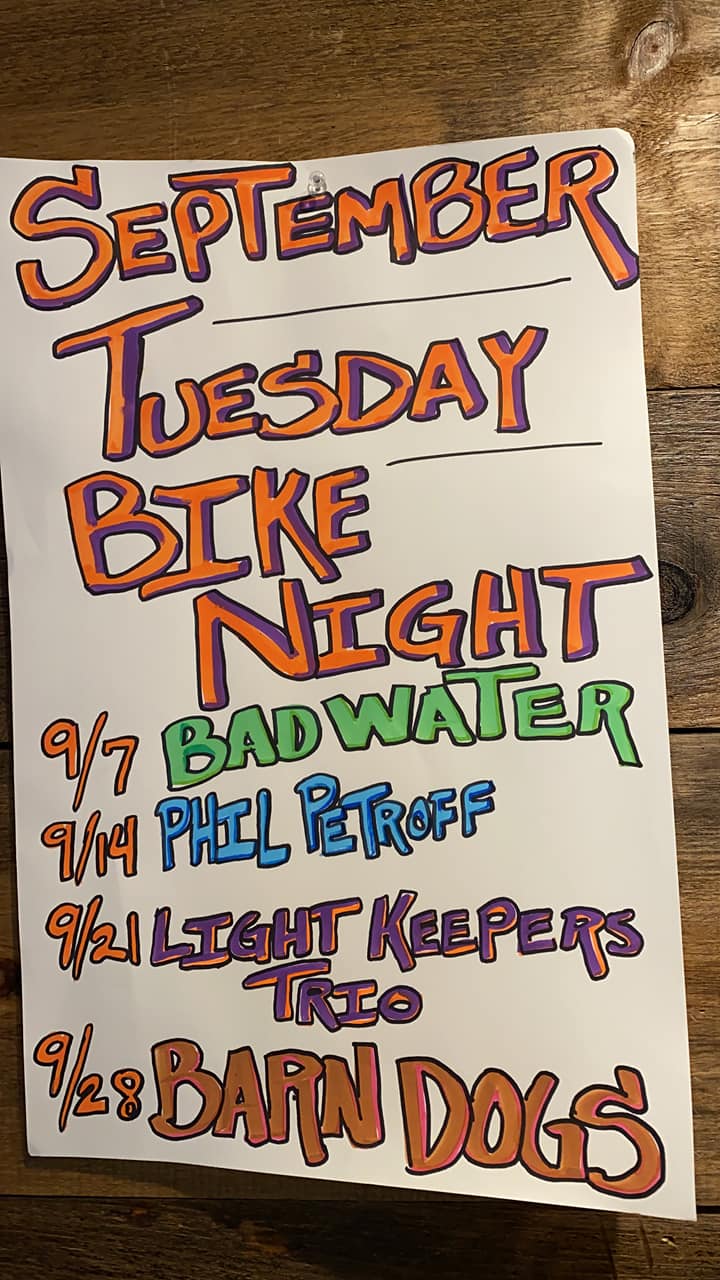 SEPTEMBER
TUESDAY
BIKE
NIGHT
9/7 BADWATER
9/14 PHIL PETROFF
9/21 LIGHT KEEPERS
TRIO
9/28 BARN DOGS